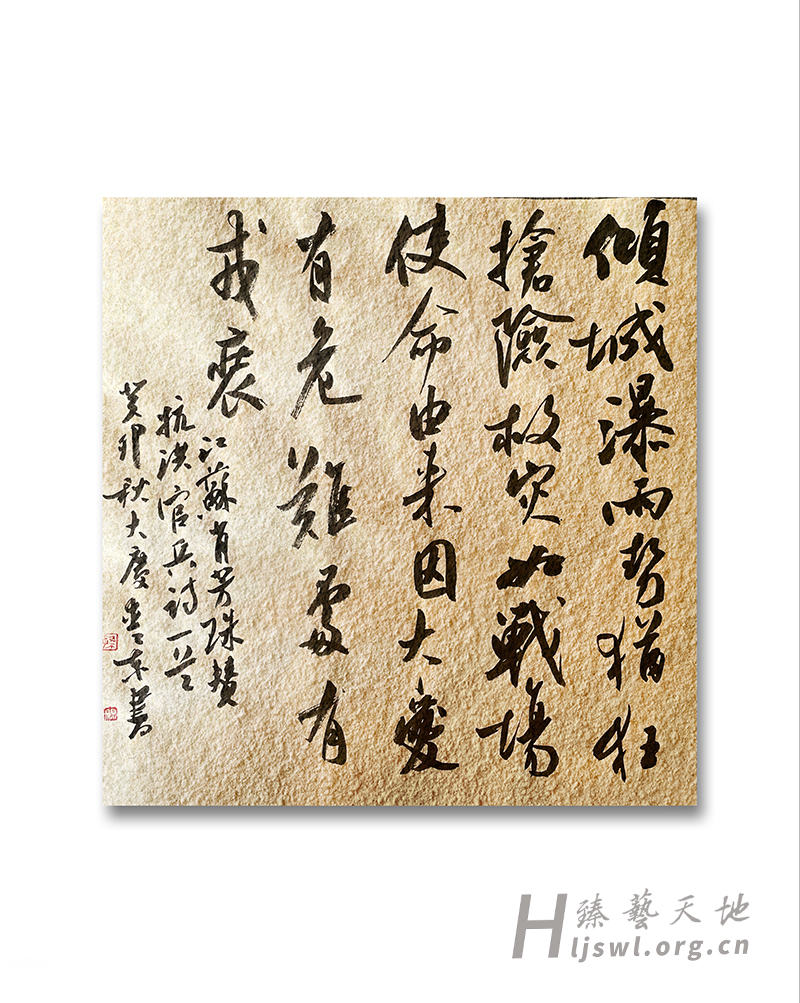 傾城瀑雨勢猶狂
搶險救灾如戰場
使命由来因大愛
有危難處有
戎裝
江蘇肖芳珠贊
抗洪官兵詩一首
癸卯秋大慶東書
臻藝天地
Hljswl.org.cn